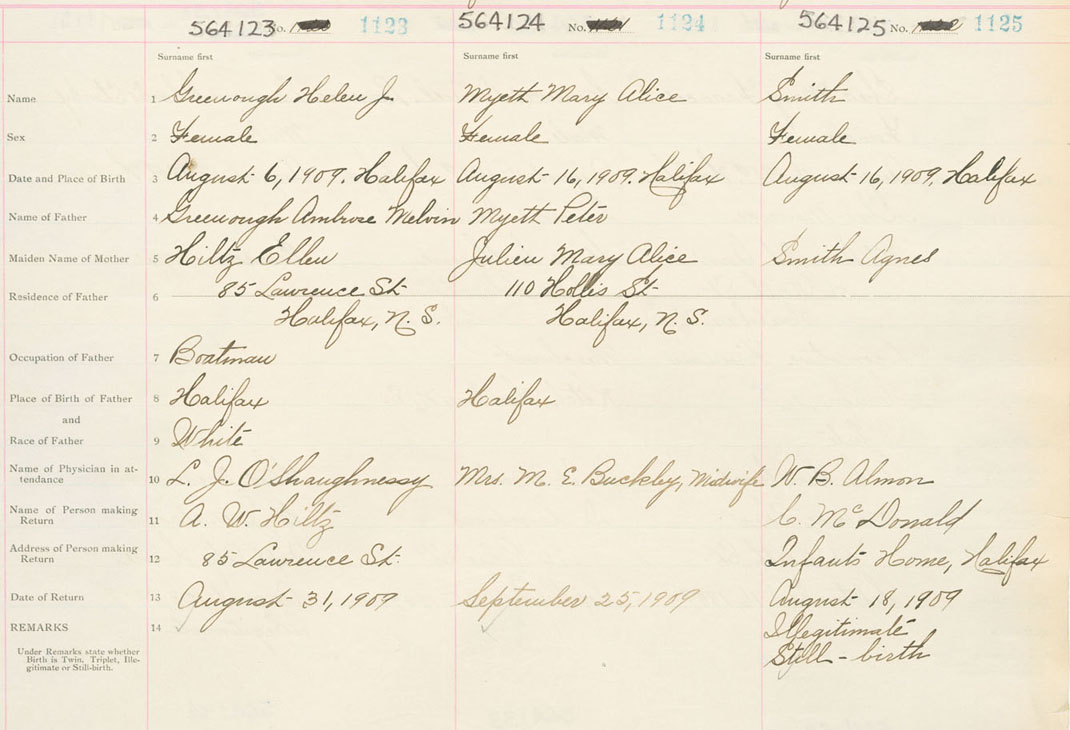 564123 No. 1123 564124 No. 1124 564125 No. 1125
Surname first Surname first Surname first
Name 1 Greenough Helen J. Myett Mary Alice Smith
Sex 2 Female Female Female
Date and Place of Birth 3 August 6, 1909. Halifax August 16, 1909. Halifax August 16, 1909. Halifax
Name of Father 4 Greenough Ambrose Melvin Myett Peter
Maiden Name of Mother 5 Hiltz Ellen Julien Mary Alice Smith Agnes
Residence of Father 6 85 Lawrence St. 110 Hollis St.
Halifax, N. S. Halifax, N. S.
Occupation of Father 7 Boatman
Place of Birth of Father 8 Halifax Halifax
and
Race of Father 9 White
Name of Physician in at-
tendance 10 L. J. O'Shaughnessy Mrs. M. E. Buckley, Midwife W. B. Almon
Name of Person making
Return 11 A. W. Hiltz C. McDonald
Address of Person making
Return 12 85 Lawrence St. Infants Home, Halifax
Date of Return 13 August 31, 1909 September 25, 1909 August 18, 1909
REMARKS 14 Illegitimate
Still-birth
Under Remarks state whether
Birth is Twin, Triplet, Ille-
gitimate or Still-birth.